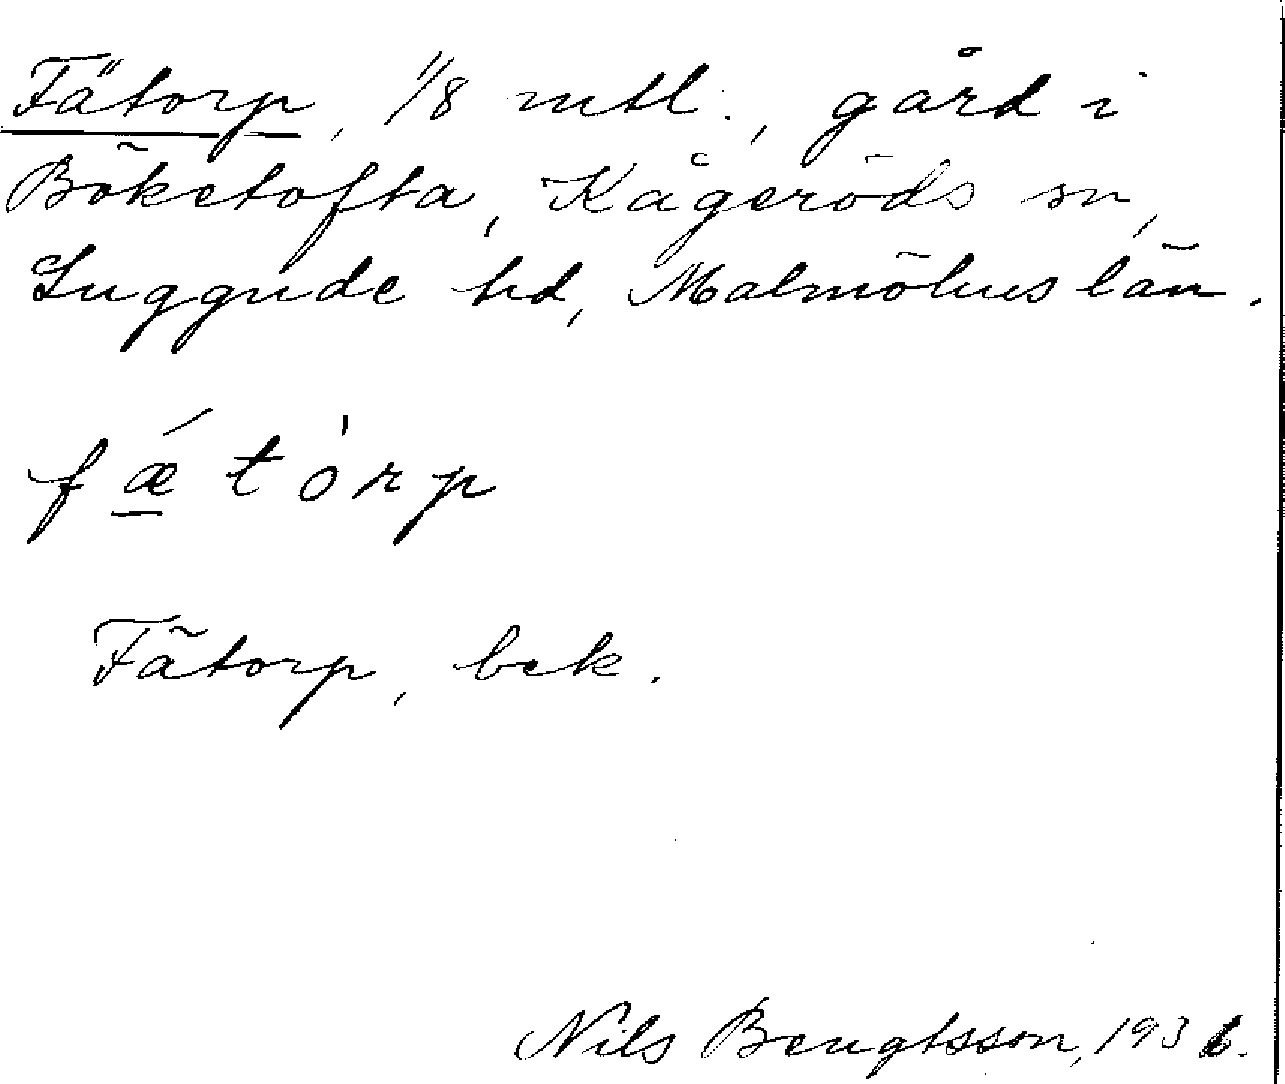 Fätorp, 1/8 mtl., gård i
Böketofta, Kågeröds sn,
Luggude hd, Malmöhus län.
fǽtòrp
Fätorp, bek.
Nils Bengtsson, 1936.